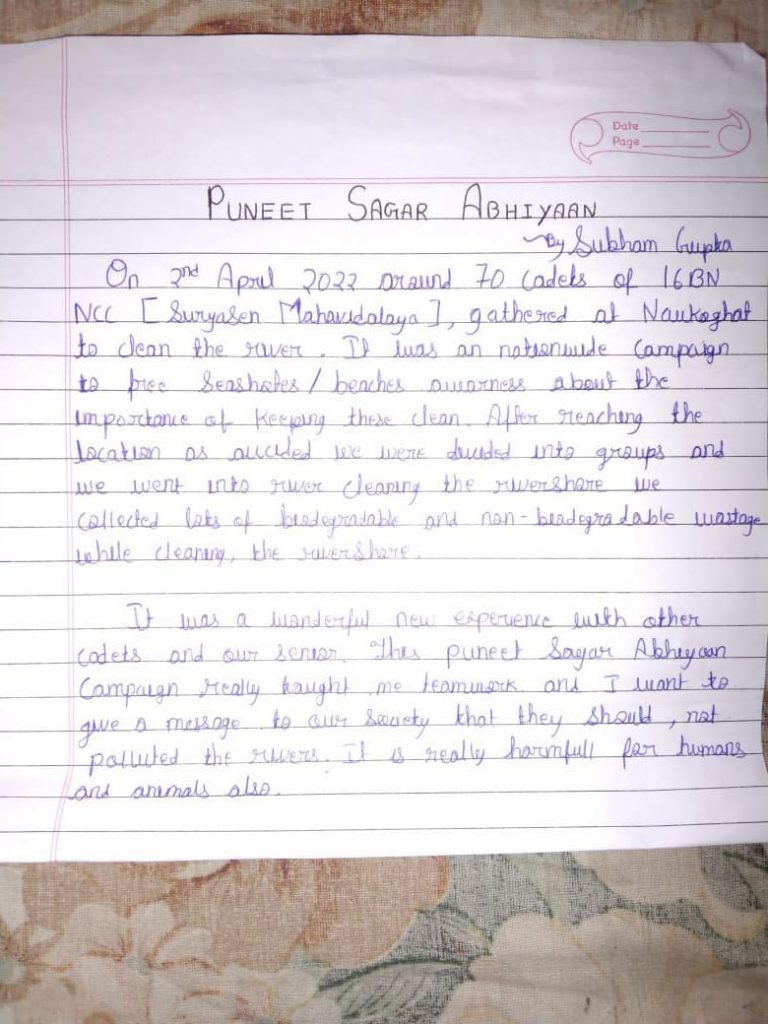 Date
Page
PUNEET SAGAR ABHIYAAN
~By Subham Gupta
On 2nd April 2022 around 70 Cadets of 16BN
NCC [Suryasen Mahavidalaya], gathered at Naukaghat
to clean the river. It was an nationwide Campaign
to free Seashores/ beaches awarness about the
importance of Keeping these clean. After reaching the
location as we were divided into groups and
we went into river cleaning the rivershore we
collected lots of biodegradable and non-biodegradable wastage
while cleaning, the rivershore.
It was a wonderful new experience with other
cadets and our senior. This puneet Sagar Abhiyaan
Campaign really taught me teamwork and I want to
give a message to our Society that they should, not
polluted the rivers. It is really harmfull for humans
and animals also.